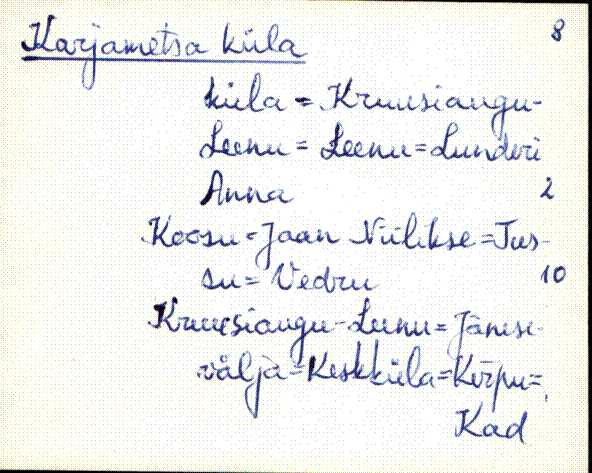 Karjametsa küla 8
küla = Kruusiaugu-
Leenu = Leenu = Lunderi
Anna 2
Koosu = Jaan Niilikse = Jus-
su = Vedru 10
Kruusiaugu-Leenu = Jänese-
välja = Keskküla = Kõrpu =
Kad